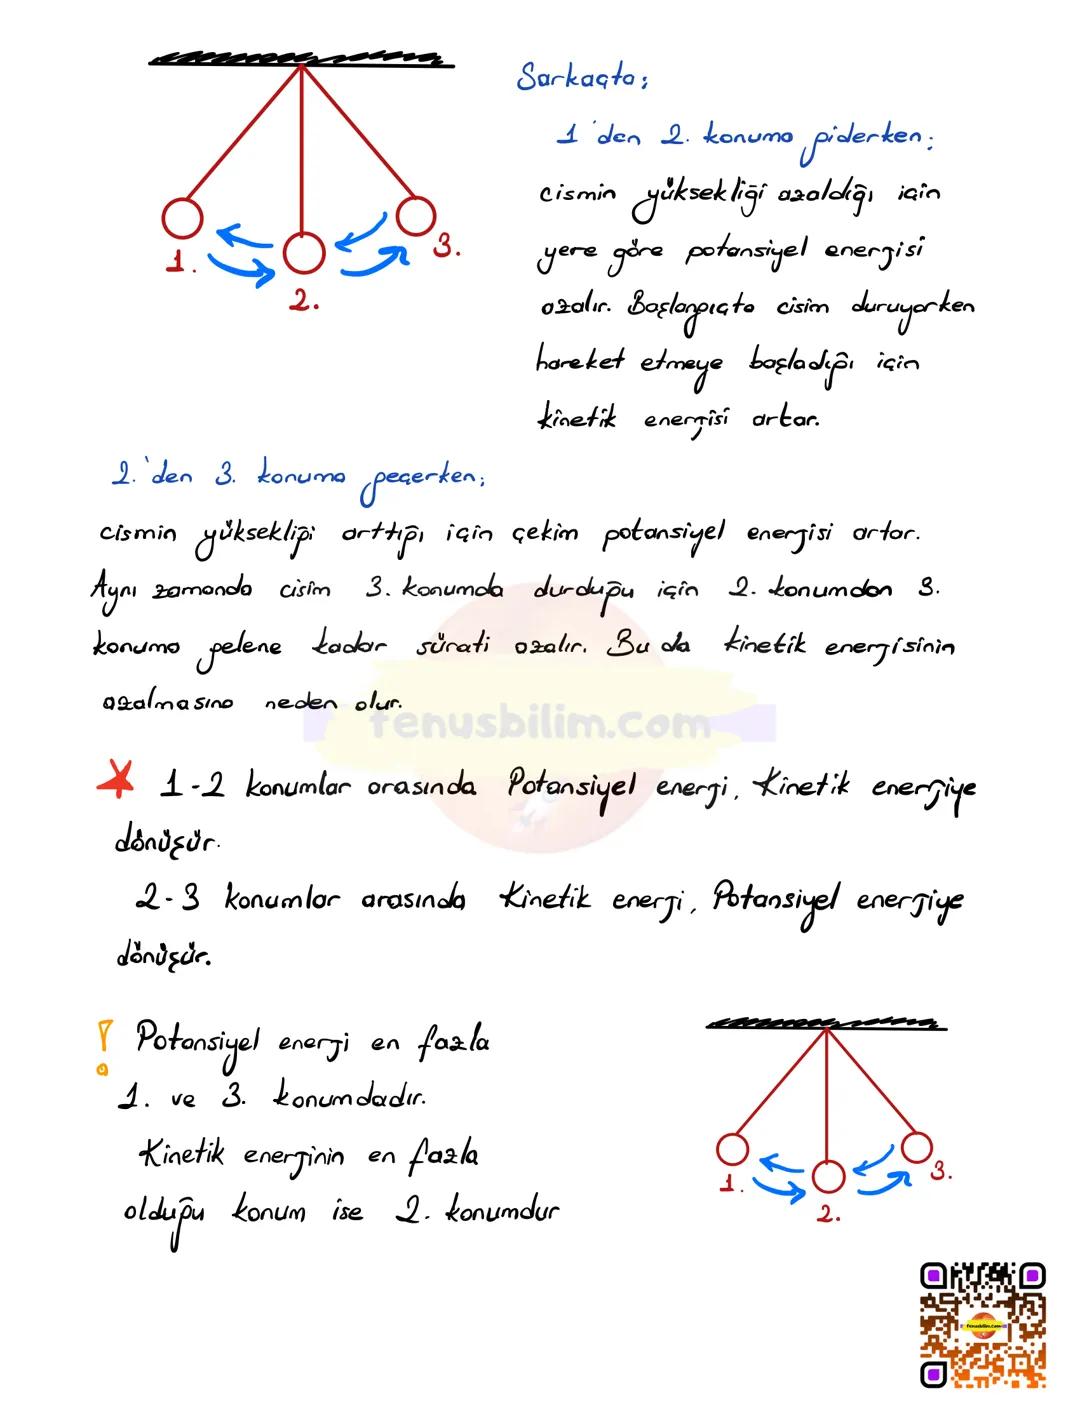 Sarkaçta;
1'den 2. konuma giderken;
cismin yüksekliği azaldığı için
yere göre potansiyel enerjisi
azalır. Başlangıçta cisim duruyorken
hareket etmeye başladığı için
kinetik enerjisi artar.
1.
2.
3.
2.'den 3. konuma geçerken;
cismin yüksekliği arttığı için çekim potansiyel enerjisi artar.
Aynı zamanda cisim 3. konumda durduğu için 2. konumdan 3.
konuma gelene kadar sürati azalır. Bu da kinetik enerjisinin
azalmasına neden olur.
fenusbilim.com
1-2 konumlar arasında Potansiyel enerji, Kinetik enerjiye
dönüşür.
2-3 konumlar arasında Kinetik enerji, Potansiyel enerjiye
dönüşür.
! Potansiyel enerji en fazla
1. ve 3. konumdadır.
Kinetik enerjinin en fazla
olduğu konum ise 2. konumdur
1.
2.
3.
fenusbilim.com